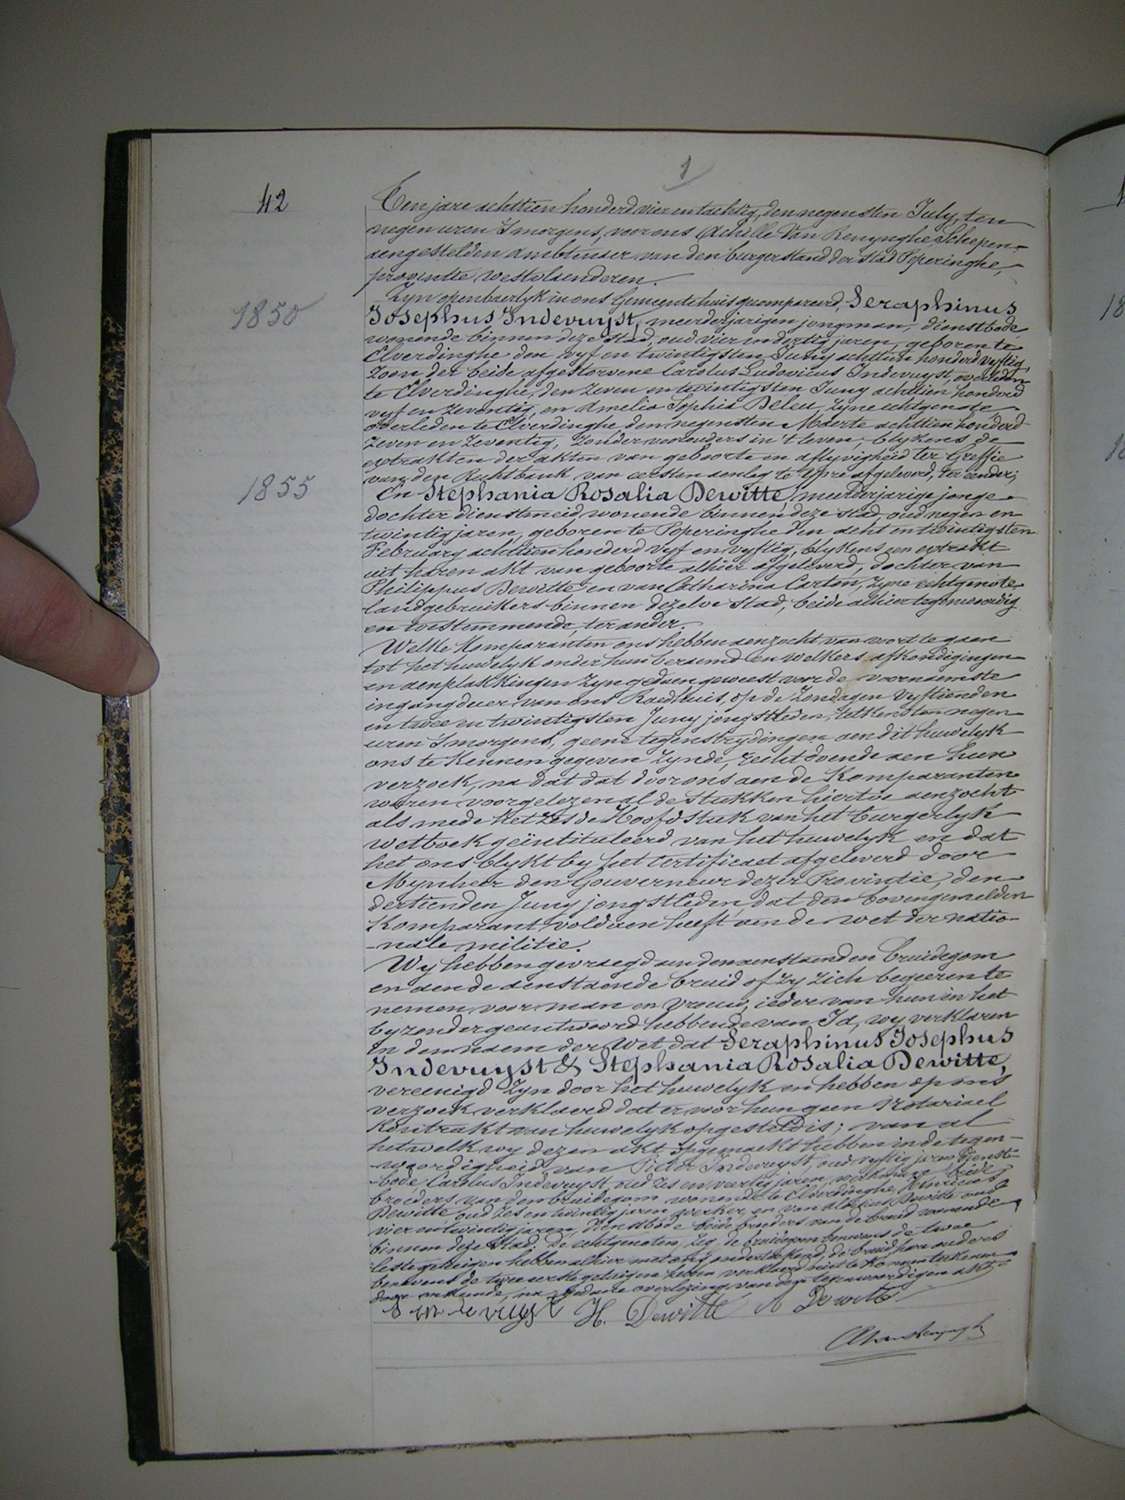 1
42
Ten jare achttien honderd vier en tachtig, den negensten July, ten
negen uren 'smorgens, voor ons Achille Van Renynghe Schepen,
aengestelden ambtenaer van den burgerstand der stad Poperinghe,
provintie westvlaenderen.
Zyn openbaerlyk in ons Gemeentehuis gecompareerd, Seraphinus
1850
Josephus Indevuyst, meerderjarigen jongman, dienstbode
wonende binnen deze stad, oud vier in dertig jaren, geboren te
Elverdinghe den vyf en twintigsten Juny achttien honderd vyftig,
zoon der beide afgestorvene Carolus Ludovicus Indevuyst, overleden
te Elverdinghe, den zeven en twintigsten Juny achttien honderd
vyf en zeventig, en Amelia Sophia Deleu zyne echtgenote
overleden te Elverdinghe den negensten Maerte achttien honderd
zeven en zeventig, zonder voorouders in 't leven, blykens de
extrakten der akten van geboorte en aflyvigheid ter Greffie
van den Rechtbank van eersten aenleg te Ypre afgeleverd, ter eender;
1855
En Stephania Rosalia Dewitte, meerderjarige jonge
dochter dienstmeid wonende binnen deze stad, oud negen en
twintig jaren, geboren te Poperinghe den acht en twintigsten
February achttien honderd vyf en vyftig, blykens een extrakt
uit haren akt van geboorte alhier afgeleverd, dochter van
Philippus Dewitte en van Catharina Carton, zyne echtgenote,
landgebruikers binnen dezelve stad, beide alhier tegenwoordig
en toestemmende, ter ander.
Welke komparanten ons hebben aenzocht van voort te gaen
tot het huwelyk onder hun beraemd en welkers afkondigingen
en aenplakkingen zyn gedaen geweest voor de voornaemste
ingangdeur van ons Raedhuis, op de Zondagen vyftienden
en twee en twintigsten Juny jongstleden, telkens ten negen
uren 'smorgens, geene tegenstrydingen aen dit huwelyk
ons te kennen gegeven zynde, recht doende aen hun
verzoek, na dat dat door ons aen de komparanten
waren voorgelezen al de stukken hiertoe aenzocht
als mede het zesde Hoofdstuk van het burgerlyk
wetboek geïntituleerd van het huwelyk en dat
het ons blykt by het certificaet afgeleverd door
Mynheer den Gouverneur dezer Provintie, den
dertienden Juny jongstleden, dat den bovengemelden
Komparant, voldaen heeft aen de wet der natio-
-nale militie.
Wy hebben gevraegd aen den aenstaenden bruidegom
en aen de aenstaende bruid of zy zich begeeren te
nemen voor man en vrouw, ieder van hun in het
byzonder geantwoord hebbende van Ja, wy verklaren
in den naem der Wet dat Seraphinus Josephus
Indevuyst & Stephania Rosalia Dewitte,
vereenigd zyn door het huwelyk en hebben op ons
verzoek verklaerd dat er voor hun geen Notariael
Kontrakt van huwelyk opgesteld is; van al
hetwelk wy dezen akt opgemaekt hebben in de tegen-
-woordigheid van Pieter Indevuyst, oud vyftig jaren dienst-
-bode Carolus Indevuyst, oud zes en veertig jaren, werkman beide
broeders van den bruidegom wonende te Elverdinghe, Henricus
Dewitte oud zes en twintig jaren werker, en van Aloisius Dewitte oud
vier en twintig jaren, dienstbode beide broeders van de bruid wonende
binnen deze stad. De echtgenoten, zeg, de bruidegom benevens de twee
leste getuigen hebben alhier met ons onderteekend, de bruid hare ouders
benevens de twee eerste getuigen hebben verklaerd niet te konnen teekenen
door onkunde, na gedane overlezing van den tegenwoordigen akt.
S indevuyst H. Dewitte A Dewitte
AVanRenynghe